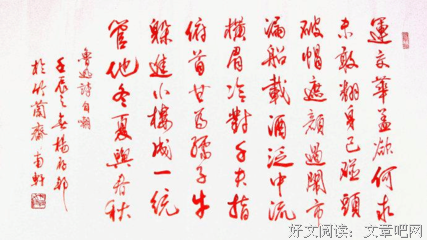 運交華盖欲何求
未敢翻身已碰頭
破帽遮顏過鬧市
漏船載酒泛中流
橫眉冷對千夫指
俯首甘為孺子牛
躲進小樓成一統
管他冬夏與春秋
魯迅詩自嘲
壬辰之
於竹蘭齋
好文阅读：文章吧网